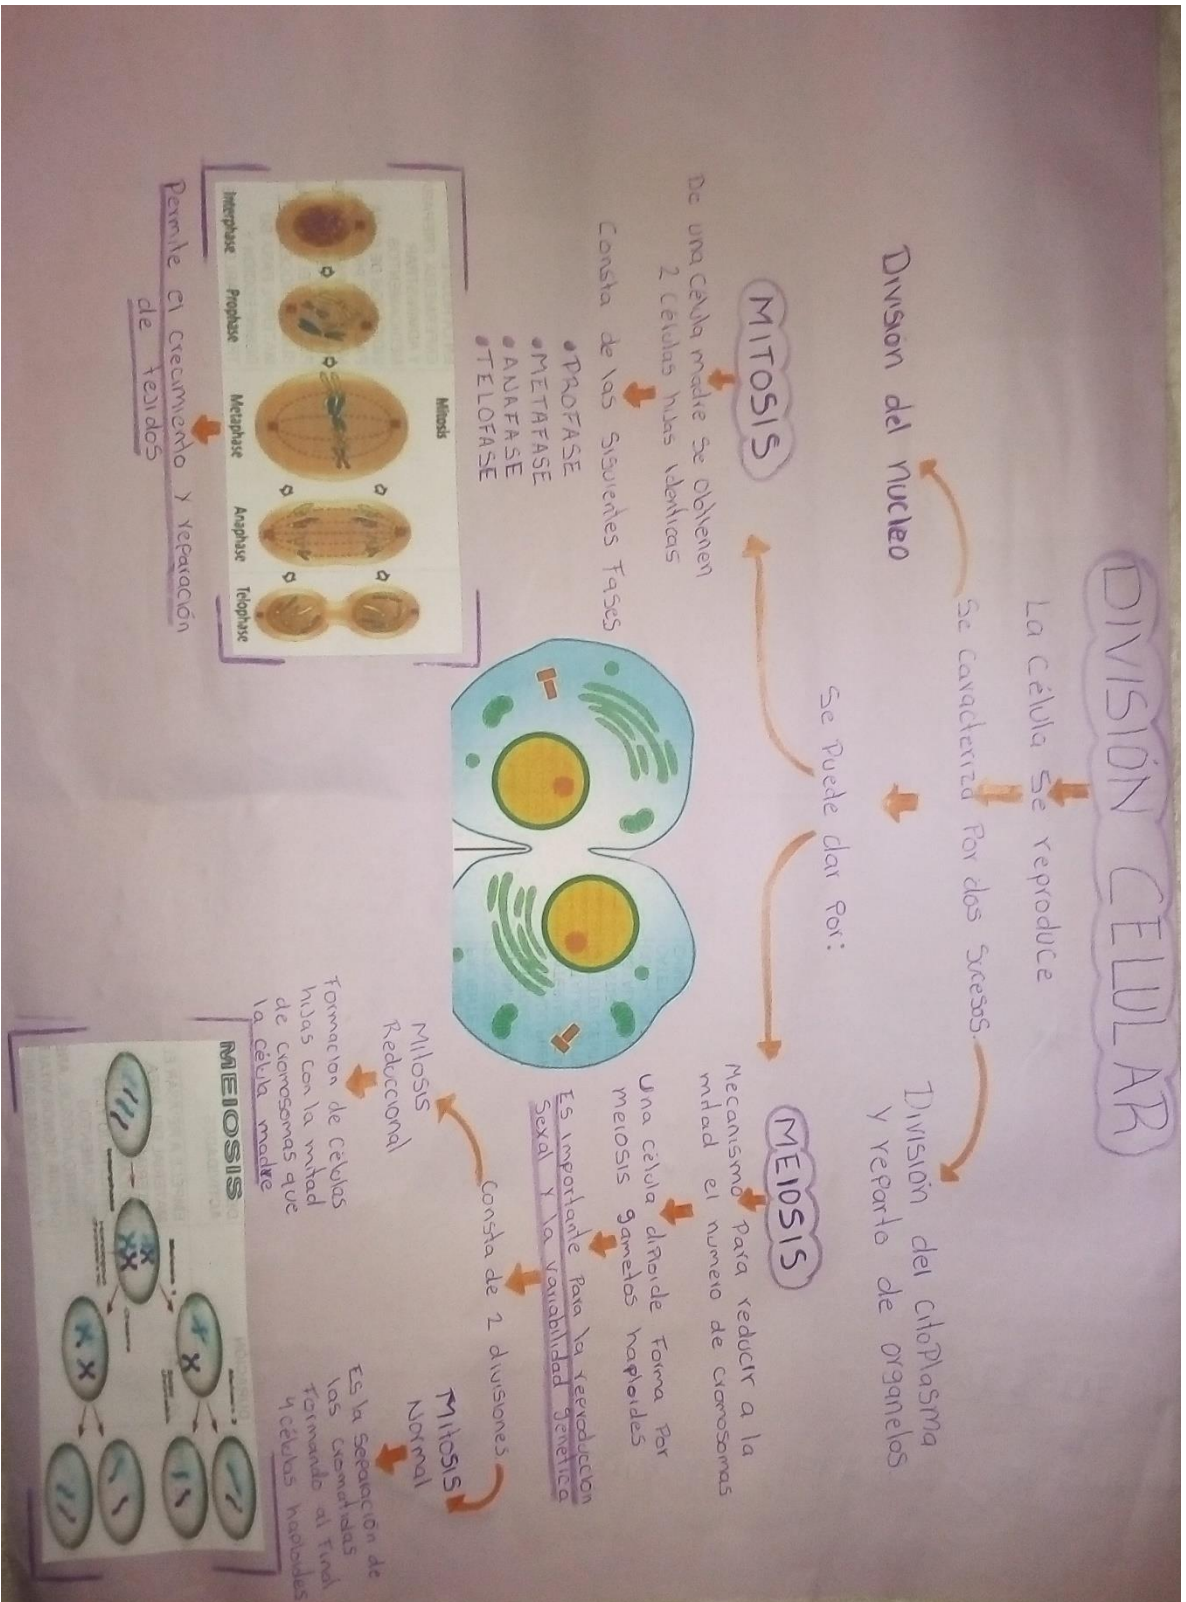 DIVISIÓN CELULAR
La célula se reproduce
Se caracteriza Por dos sucesos.
División del nucleo
División del citoplasma
y reparto de organelos.
Se Puede dar Por:
MITOSIS
De una célula madre se obtienen
2 células hijas identicas
Consta de las siguientes Fases
•PROFASE
•METAFASE
•ANAFASE
•TELOFASE
Mitosis
Interphase Prophase Metaphase Anaphase Telophase
Permite el crecimiento y reparación
de tejidos
MEIOSIS
Mecanismo Para reducir a la
mitad el numero de cromosomas
Una célula diploide Forma Por
meiosis gametos haploides
Es importante Para la reproducción
Sexal y la variabilidad genetica
Consta de 2 divisiones
Mitosis
Reduccional
Formacion de células
hijas con la mitad
de cromosomas que
la célula madre
Mitosis
Normal
Es la separación de
las cromatidas
Formando al Final
4 células haploides
MEIOSIS